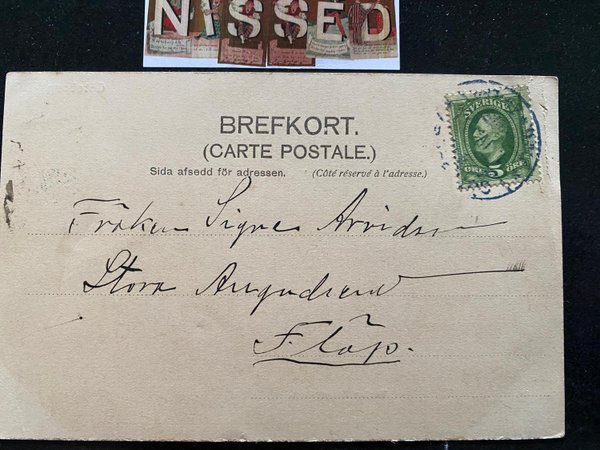 NISSED
BREFKORT.
(CARTE POSTALE.)
Sida afsedd för adressen. (Côté réservé à l'adresse.)
SVERIGE
ÖRE 5 ÖRE
Fröken Signe Arvidsson
Stora